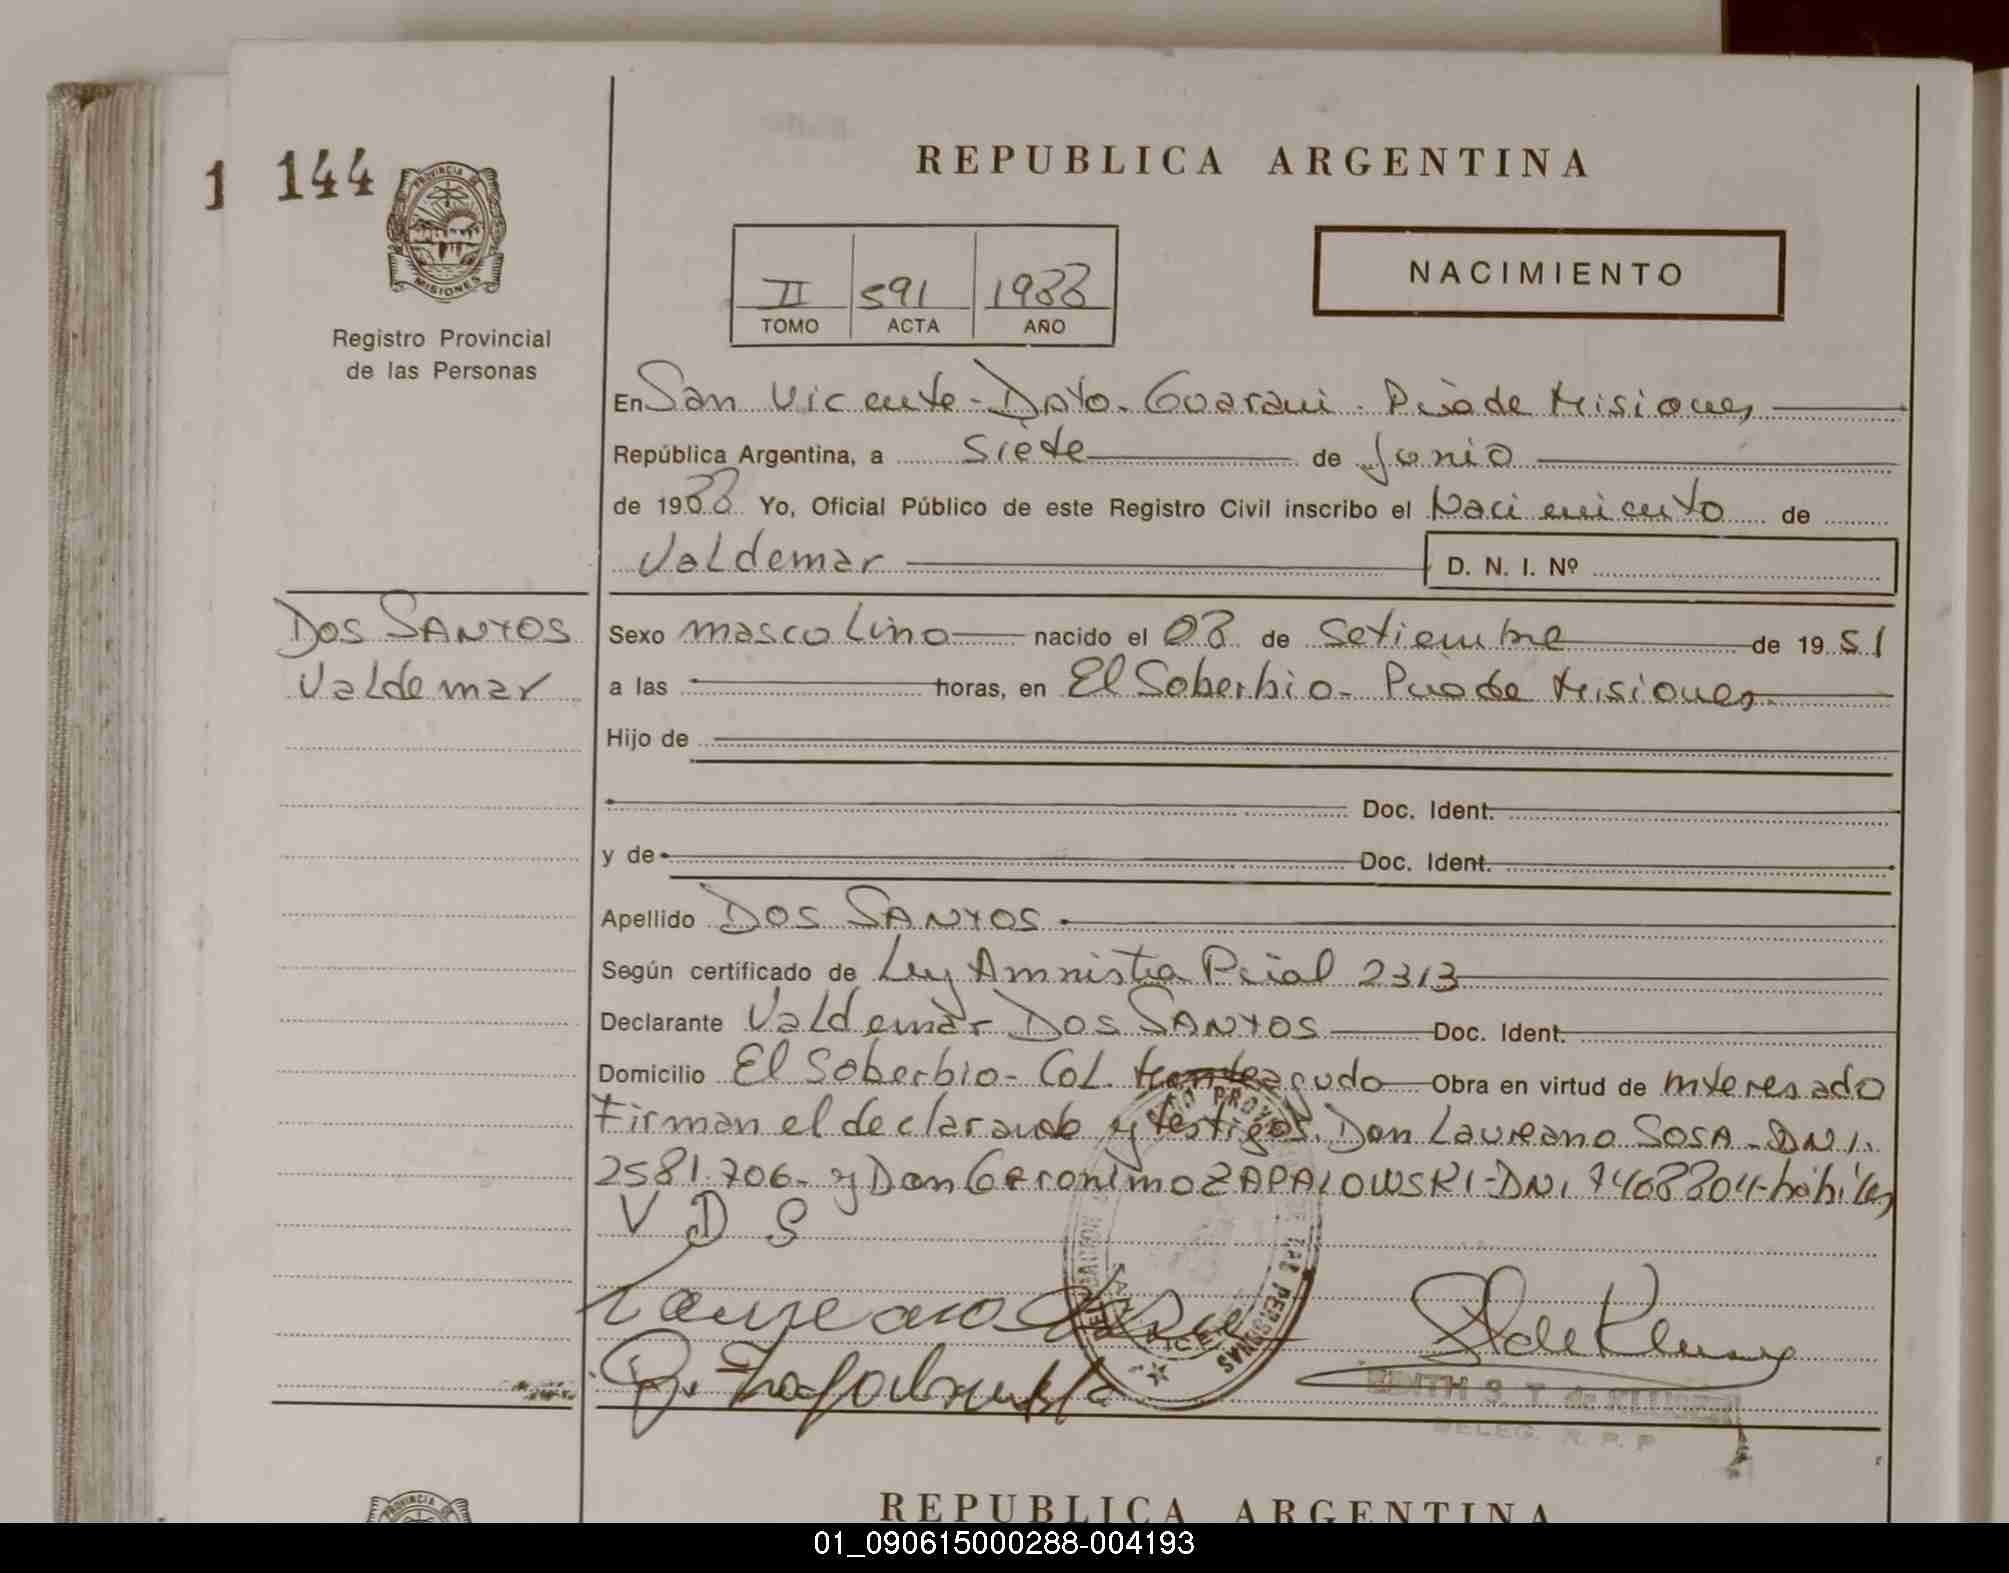 1 144
PROVINCIA DE
MISIONES
Registro Provincial
de las Personas
REPUBLICA ARGENTINA
II 591 1988
TOMO ACTA AÑO
NACIMIENTO
En San Vicente - Dpto. Guarani. Pcia de Misiones
República Argentina, a siete de Junio
de 1988 Yo, Oficial Público de este Registro Civil inscribo el Nacimiento de
Valdemar D. N. I. Nº
DOS SANTOS
Valdemar
Sexo masculino nacido el 08 de Setiembre de 1951
a las horas, en El Soberbio - Pcia de Misiones
Hijo de
Doc. Ident.
y de Doc. Ident.
Apellido DOS SANTOS
Según certificado de Ley Amnistia Pcial 2313
Declarante Valdemar DOS SANTOS Doc. Ident.
Domicilio El Soberbio - Col. Monteagudo Obra en virtud de interesado
Firman el declarante y testigos. Don Laureano SOSA - DNI.
2581.706 - y Don Geronimo ZAPALOWSKI - DNI 7468804 - hábiles
V D S
Laureano Sosa
EDITH S. T. de KLUSER
DELEG. R. P. P
PROVINCIA
REPUBLICA ARGENTINA
01_090615000288-004193